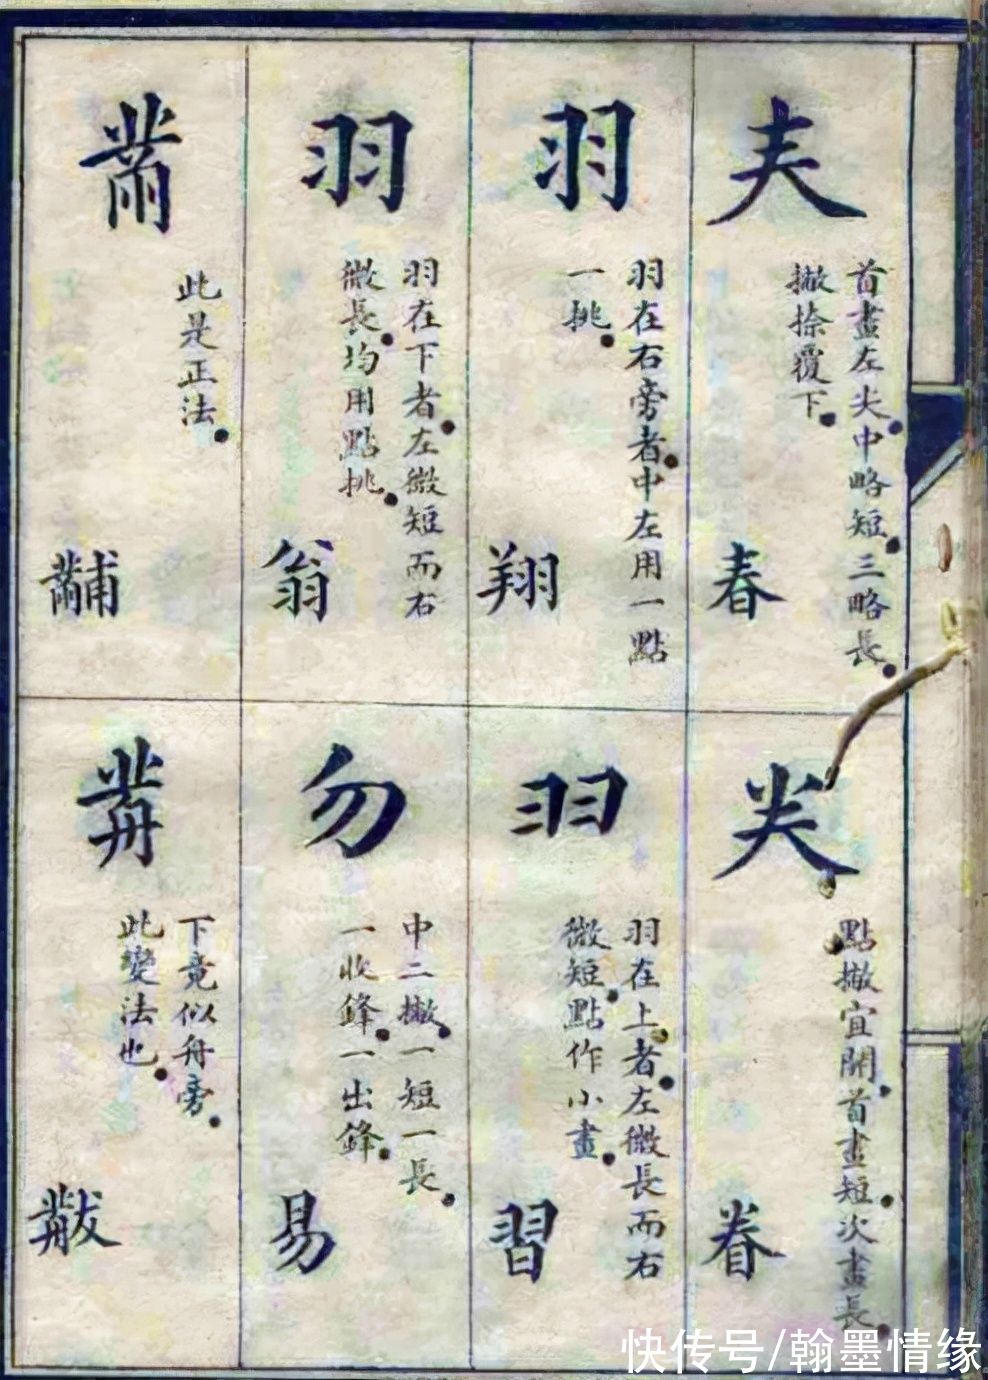 𡗗
首畫左尖。中略短。三略長。
撇捺覆下。
春
羽
羽在右旁者。中左用一點
一挑。
翔
羽
羽在下者。左微短而右
微長。均用點挑。
翁
黹
此是正法。
黼
龹
點撇宜開。首畫短。次畫長。
眷
羽
羽在上者。左微長而右
微短。點作小畫。
習
勿
中二撇。一短一長。
一收鋒。一出鋒。
易
黹
下竟似舟旁。
此變法也。
黻
快传号/翰墨情缘